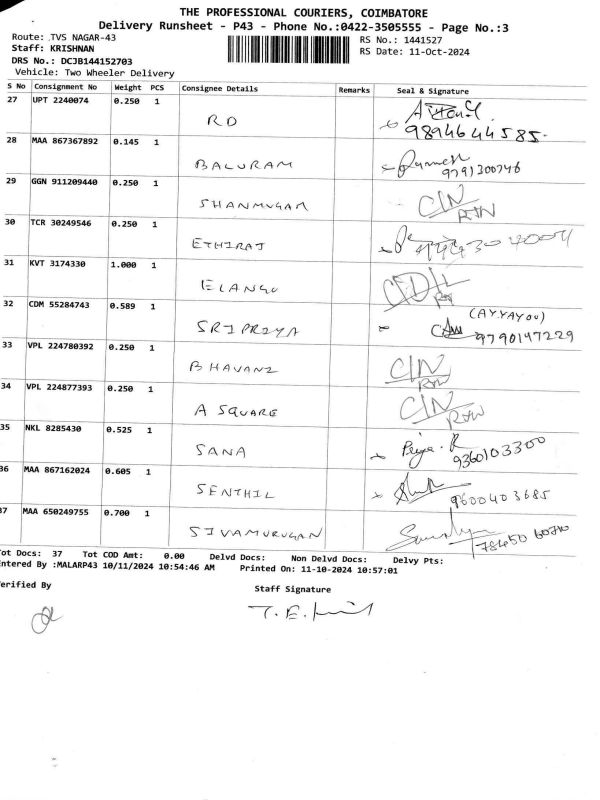 THE PROFESSIONAL COURIERS, COIMBATORE
Delivery Runsheet - P43 - Phone No.:0422-3505555 - Page No.:3
Route: TVS NAGAR-43 RS No.: 1441527
Staff: KRISHNAN RS Date: 11-Oct-2024
DRS No.: DCJB144152703
Vehicle: Two Wheeler Delivery
S No Consignment No Weight PCS Consignee Details Remarks Seal & Signature
27 UPT 2240074 0.250 1
RD 9894644585
28 MAA 867367892 0.145 1
BALURAM 9791300746
29 GGN 911209440 0.250 1
SHANMUGAM CIN
30 TCR 30249546 0.250 1
ETHIRAJ
31 KVT 3174330 1.000 1
ELANGO
32 CDM 55284743 0.589 1 (AYYAYOU)
SRIPRIYA 9790147229
33 VPL 224780392 0.250 1
BHAVANI CIN
34 VPL 224877393 0.250 1
A SQUARE CIN
35 NKL 8285430 0.525 1
SANA 9360103300
36 MAA 867162024 0.605 1
SENTHIL 9600403685
37 MAA 650249755 0.700 1
SIVAMURUGAN
Tot Docs: 37 Tot COD Amt: 0.00 Delvd Docs: Non Delvd Docs: Delvy Pts:
Entered By :MALARP43 10/11/2024 10:54:46 AM Printed On: 11-10-2024 10:57:01
Verified By Staff Signature